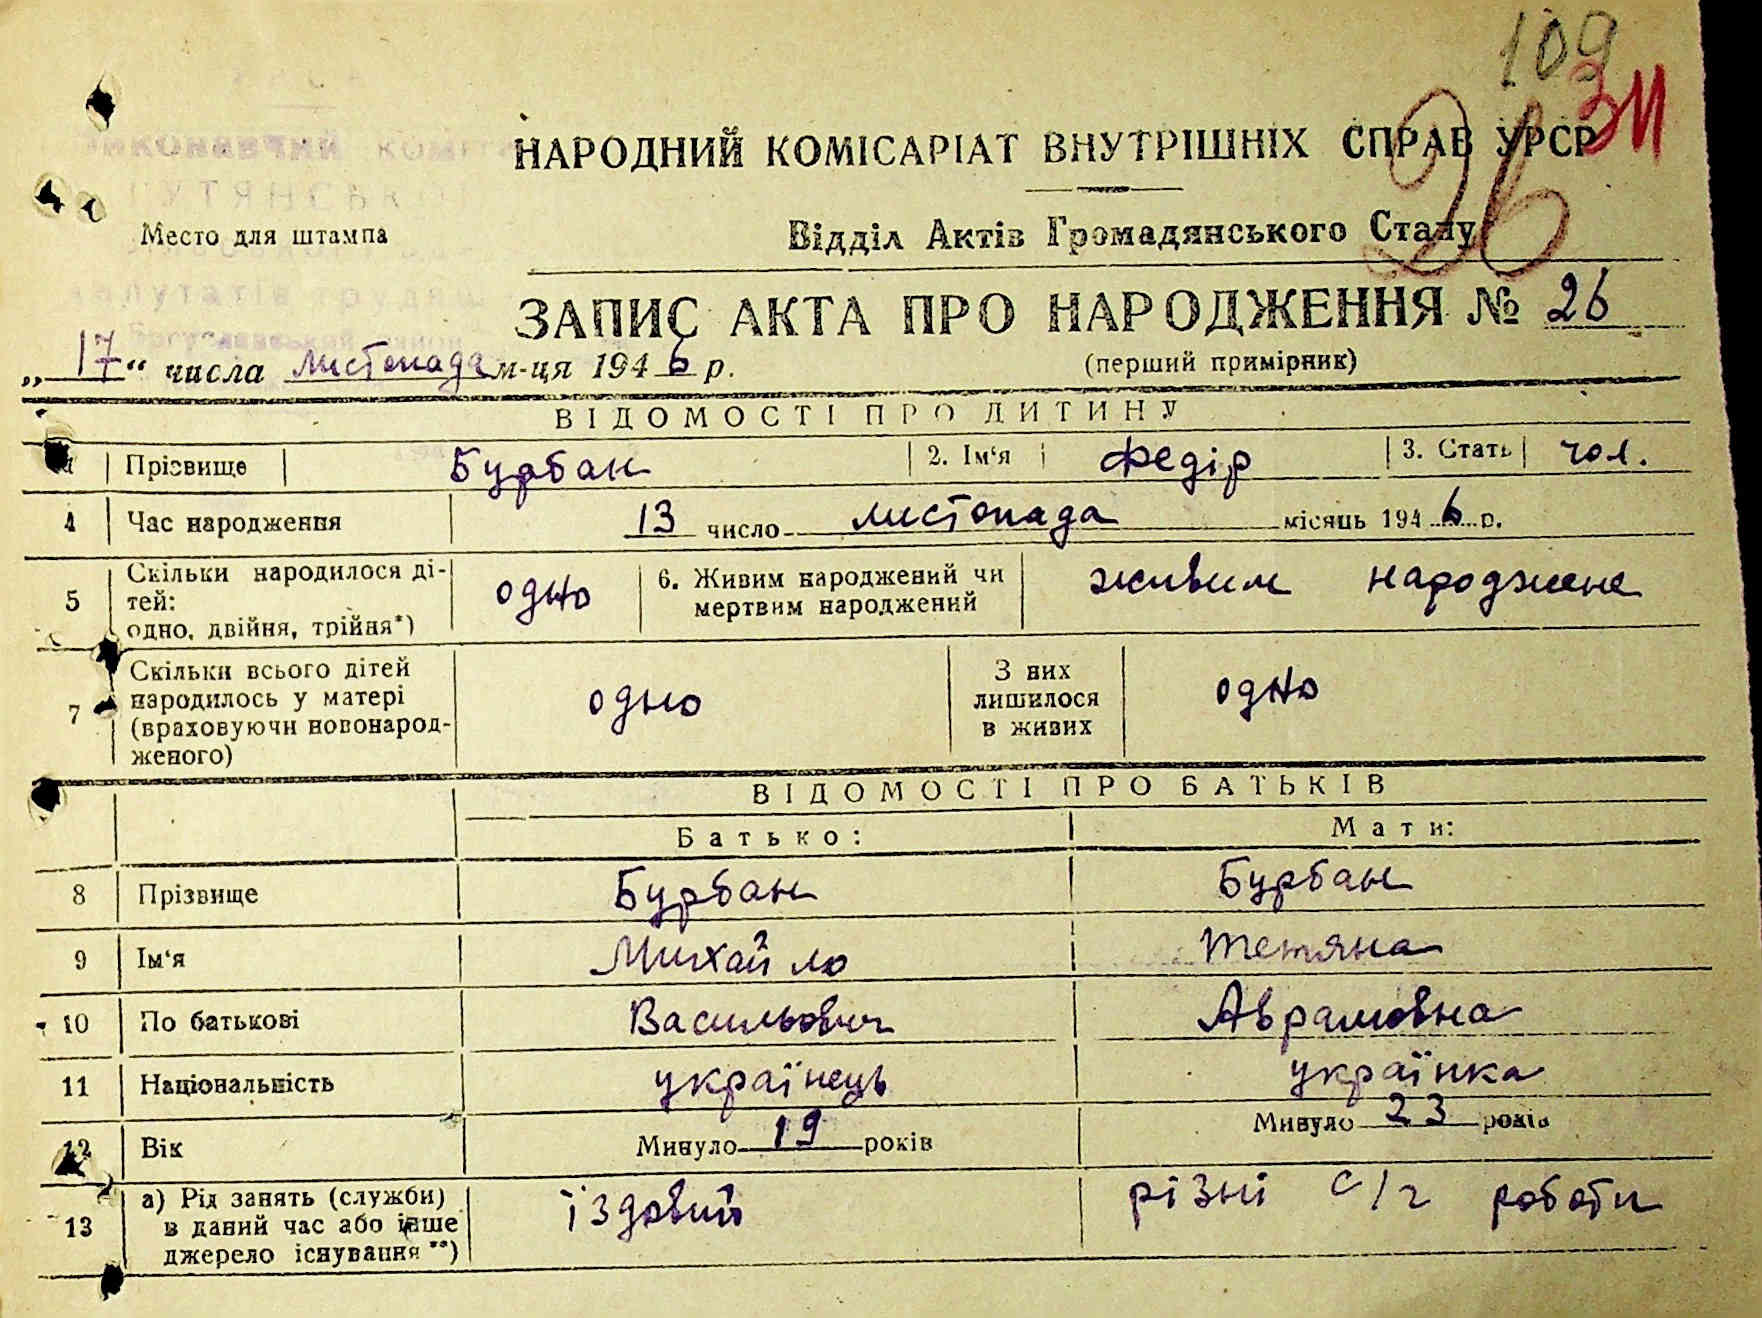 109
ЗМ
26
НАРОДНИЙ КОМІСАРІАТ ВНУТРІШНІХ СПРАВ УРСР
Место для штампа
Відділ Актів Громадянського Стану
ЗАПИС АКТА ПРО НАРОДЖЕННЯ № 26
„17“ числа листопада м-ця 1946 р.
(перший примірник)
ВІДОМОСТІ ПРО ДИТИНУ
Прізвище Бурбан 2. Ім‘я Федір 3. Стать чол.
4 Час народження 13 число листопада місяць 1946 р.
5 Скільки народилося ді-
тей:
одно, двійня, трійня*) одно 6. Живим народжений чи
мертвим народжений живим народжене
7 Скільки всього дітей
народилось у матері
(враховуючи новонарод-
женого) одно З них
лишилося
в живих одно
ВІДОМОСТІ ПРО БАТЬКІВ
Батько: Мати:
8 Прізвище Бурбан Бурбан
9 Ім‘я Михайло Тетяна
10 По батькові Васильович Аврамовна
11 Національність українець українка
12 Вік Минуло 19 років Минуло 23 років
13 а) Рід занять (служби)
в даний час або інше
джерело існування **) їздовий різні с/г роботи